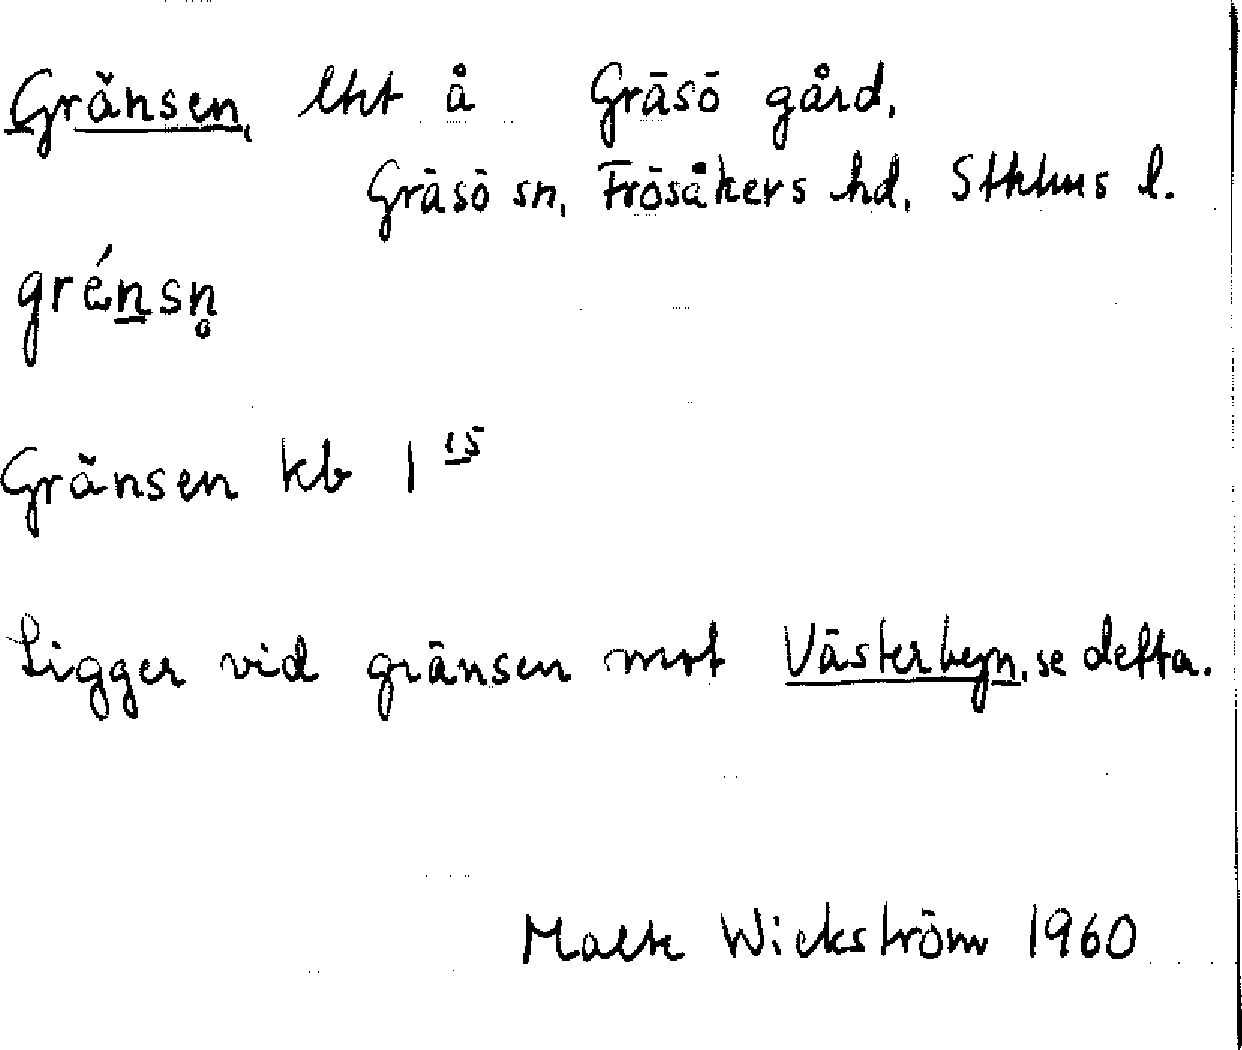 Gränsen, lht å Gräsö gård,
Gräsö sn, Frösåkers hd, Sthlms l.
grénsn̥
Gränsen kb 1 15
Ligger vid gränsen mot Västerbyn, se detta.
Malte Wickström 1960